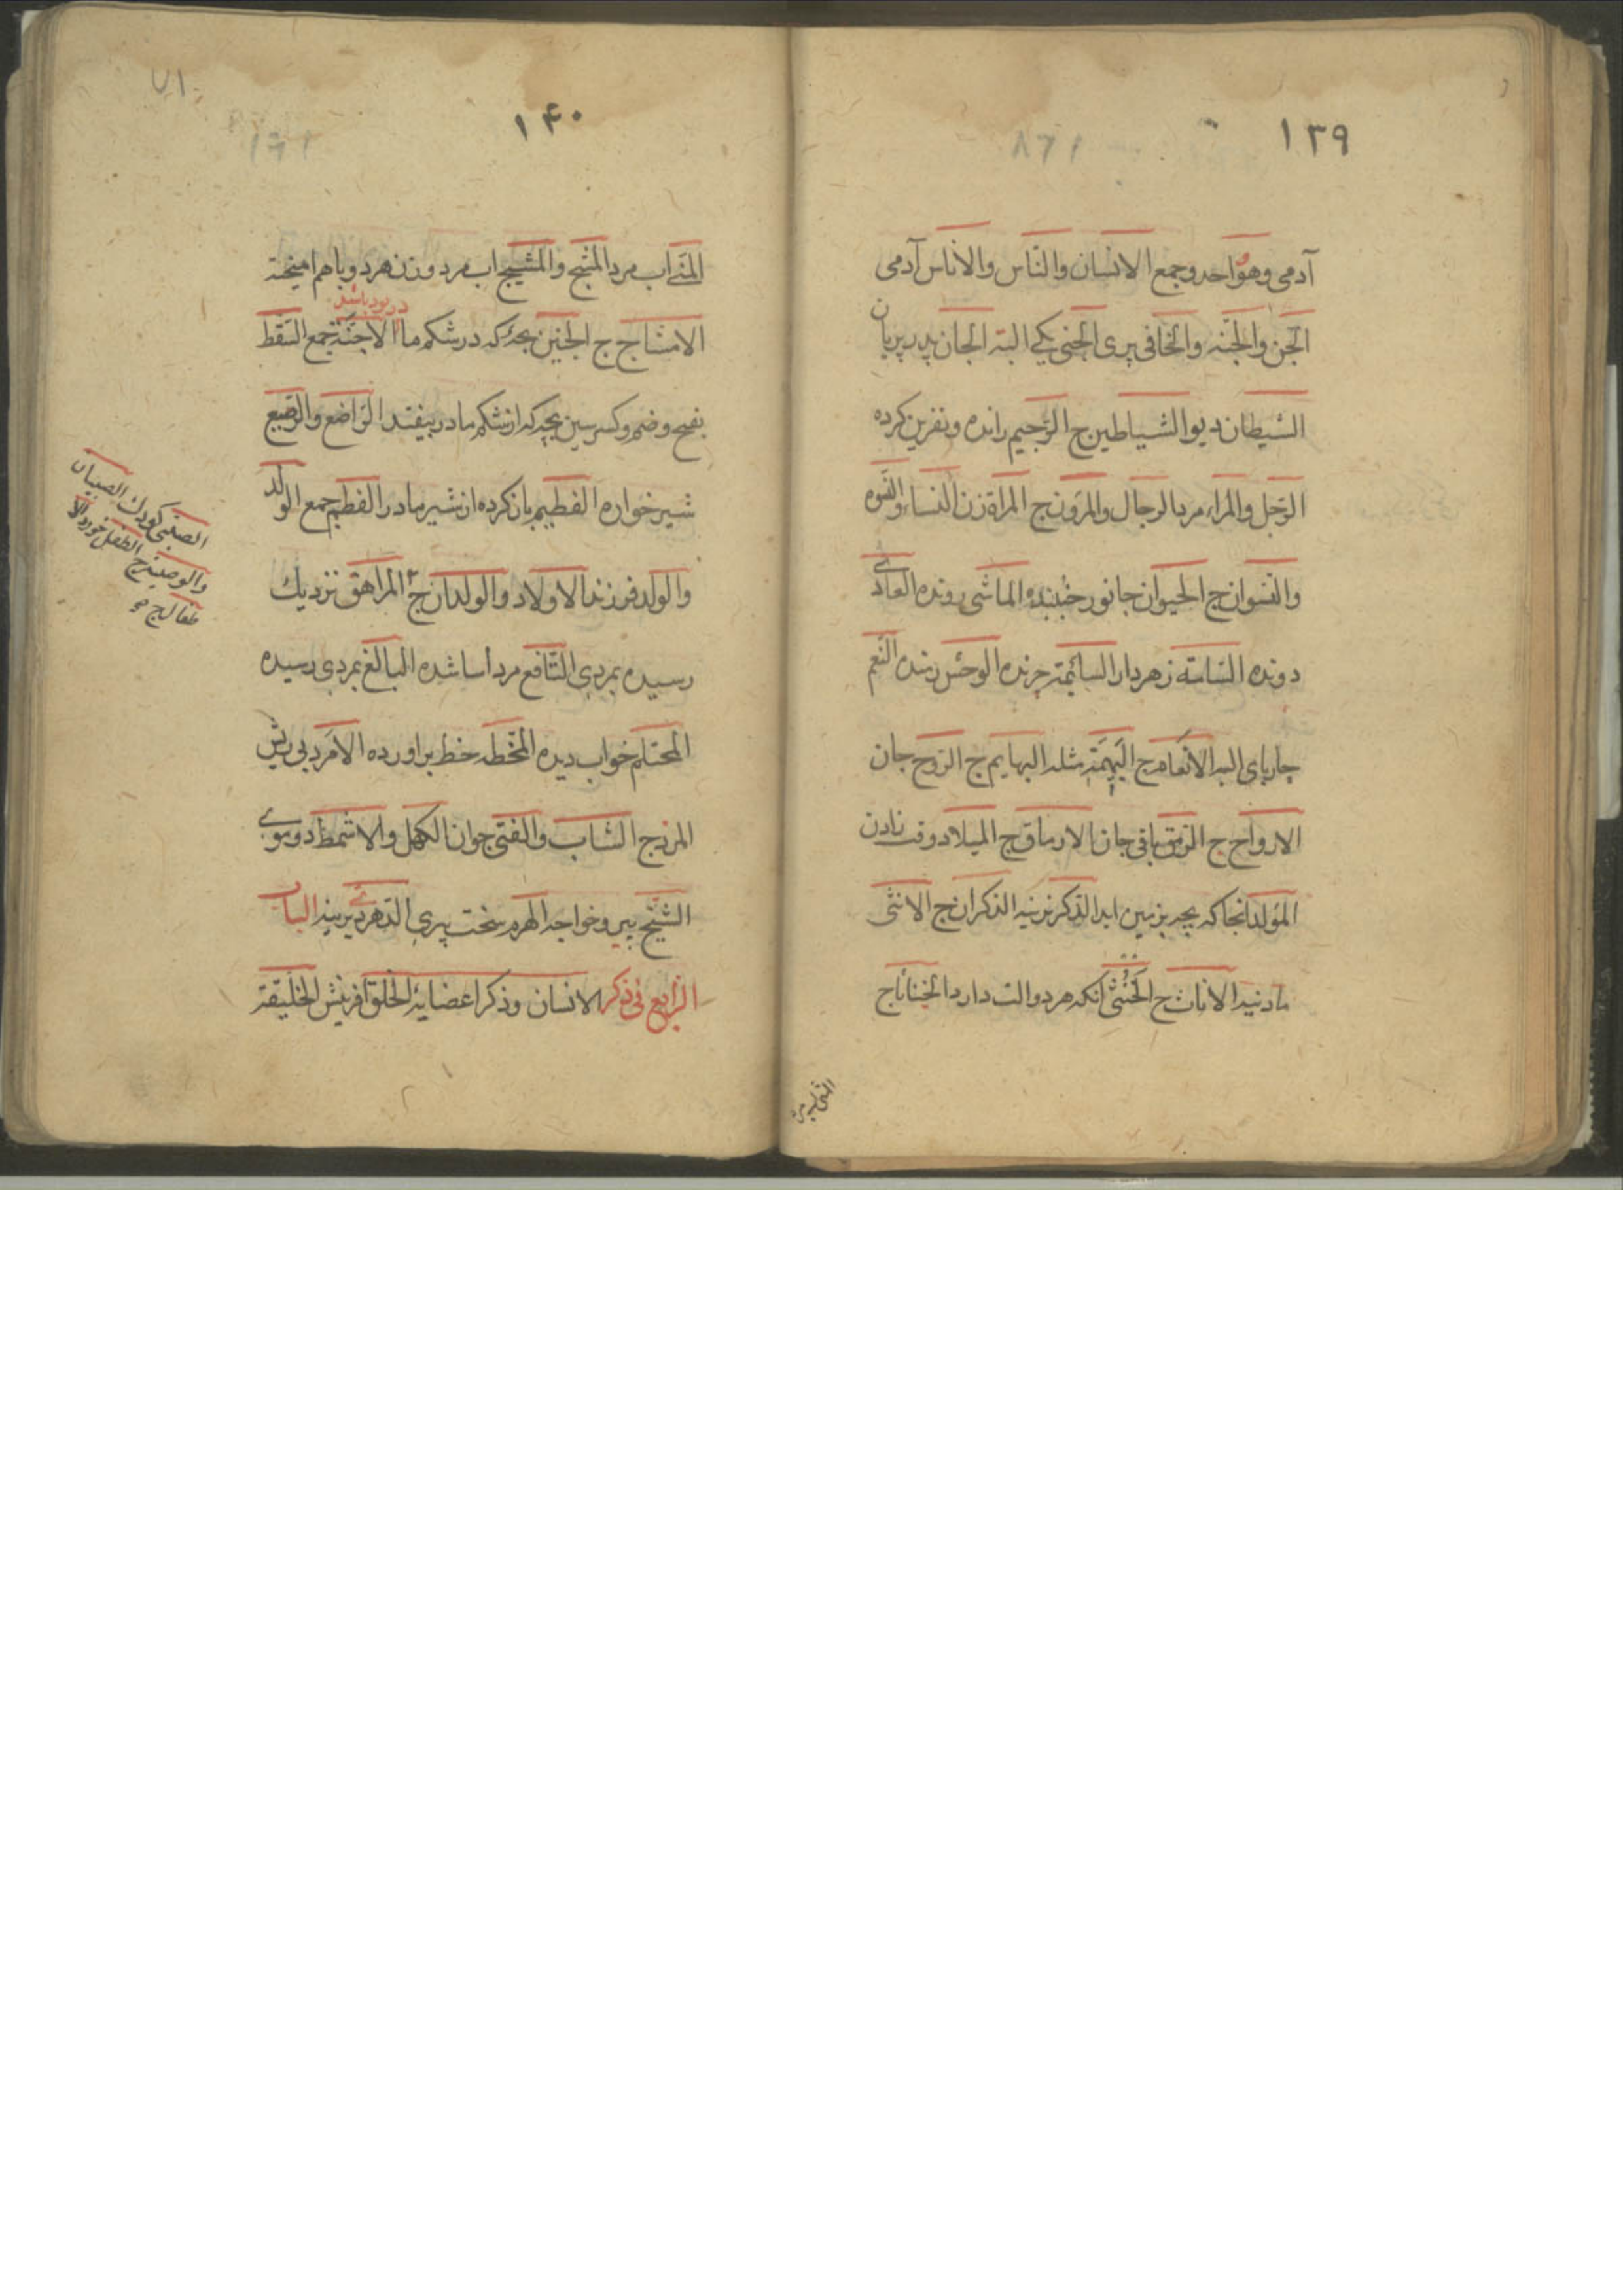 ۱۳۹
آدمی وهو واحد وجمع الانسان والنّاس والاناس آدمی
الجن والجنّه والخافی پری الجنی یکی البته الجان پدر پریان
الشیطان دیو الشیاطین ج الرّجیم رانده ونفرین کرده
الرّجل والمراء مرد الرجال والمرؤن ج المراة زن النساء والنّسوه
والنسوان ج الحیوان جانور جنبنده الماشی رونده العادی
دونده السّامّة زهردار السائمة چرنده الوحش رمنده النّعم
چارپای البد الانعام ج البهیمة مثله البهایم ج الرّوح جان
الارواح ج الرّمق باقی جان الارماق ج المیلاد وقت زادن
المولد انجا که بچه بزمین اید الذّکر نرینه الذکران ج الانثی
مادنیه الاناث ج الخنثی انکه هر دو الت دارد الخناثا ج
المنی اب
۷۱
۱۴۰
المنی اب مرد المنیج والمشیج اب مرد وزن هر دو با هم امیخته
الامشاج ج الجنین بچهٔ که در شکم ما الاجنّة جمع السّقط
در بود باشد
بفتح وضم وکسر سین بچه که از شکم مادر بیفتد الرّاضع والرّضیع
شیرخواره الفطیم بازکرده از شیر مادر الفطم جمع الولد
والولد فرزند الاولاد والولدان ج المراهق نزدیك
رسیده بمردی الیّافع مرد اسا شده البالغ بمردی رسیده
المحتلم خواب دیده المخطّط خط براورده الامرد بی ریش
المرد ج الشاب والفتی جوان الکهل والاشمط دوموی
الشّیخ پیر وخواجه الهرم سخت پیری الدّهری دیرینه الباب
الرّابع فی ذکر الانسان وذکر اعضایه الخلق افرینش الخلیقة
الصّبی کودك الصبیان
والوصیة ج الطفل خورد الا
طفال ج